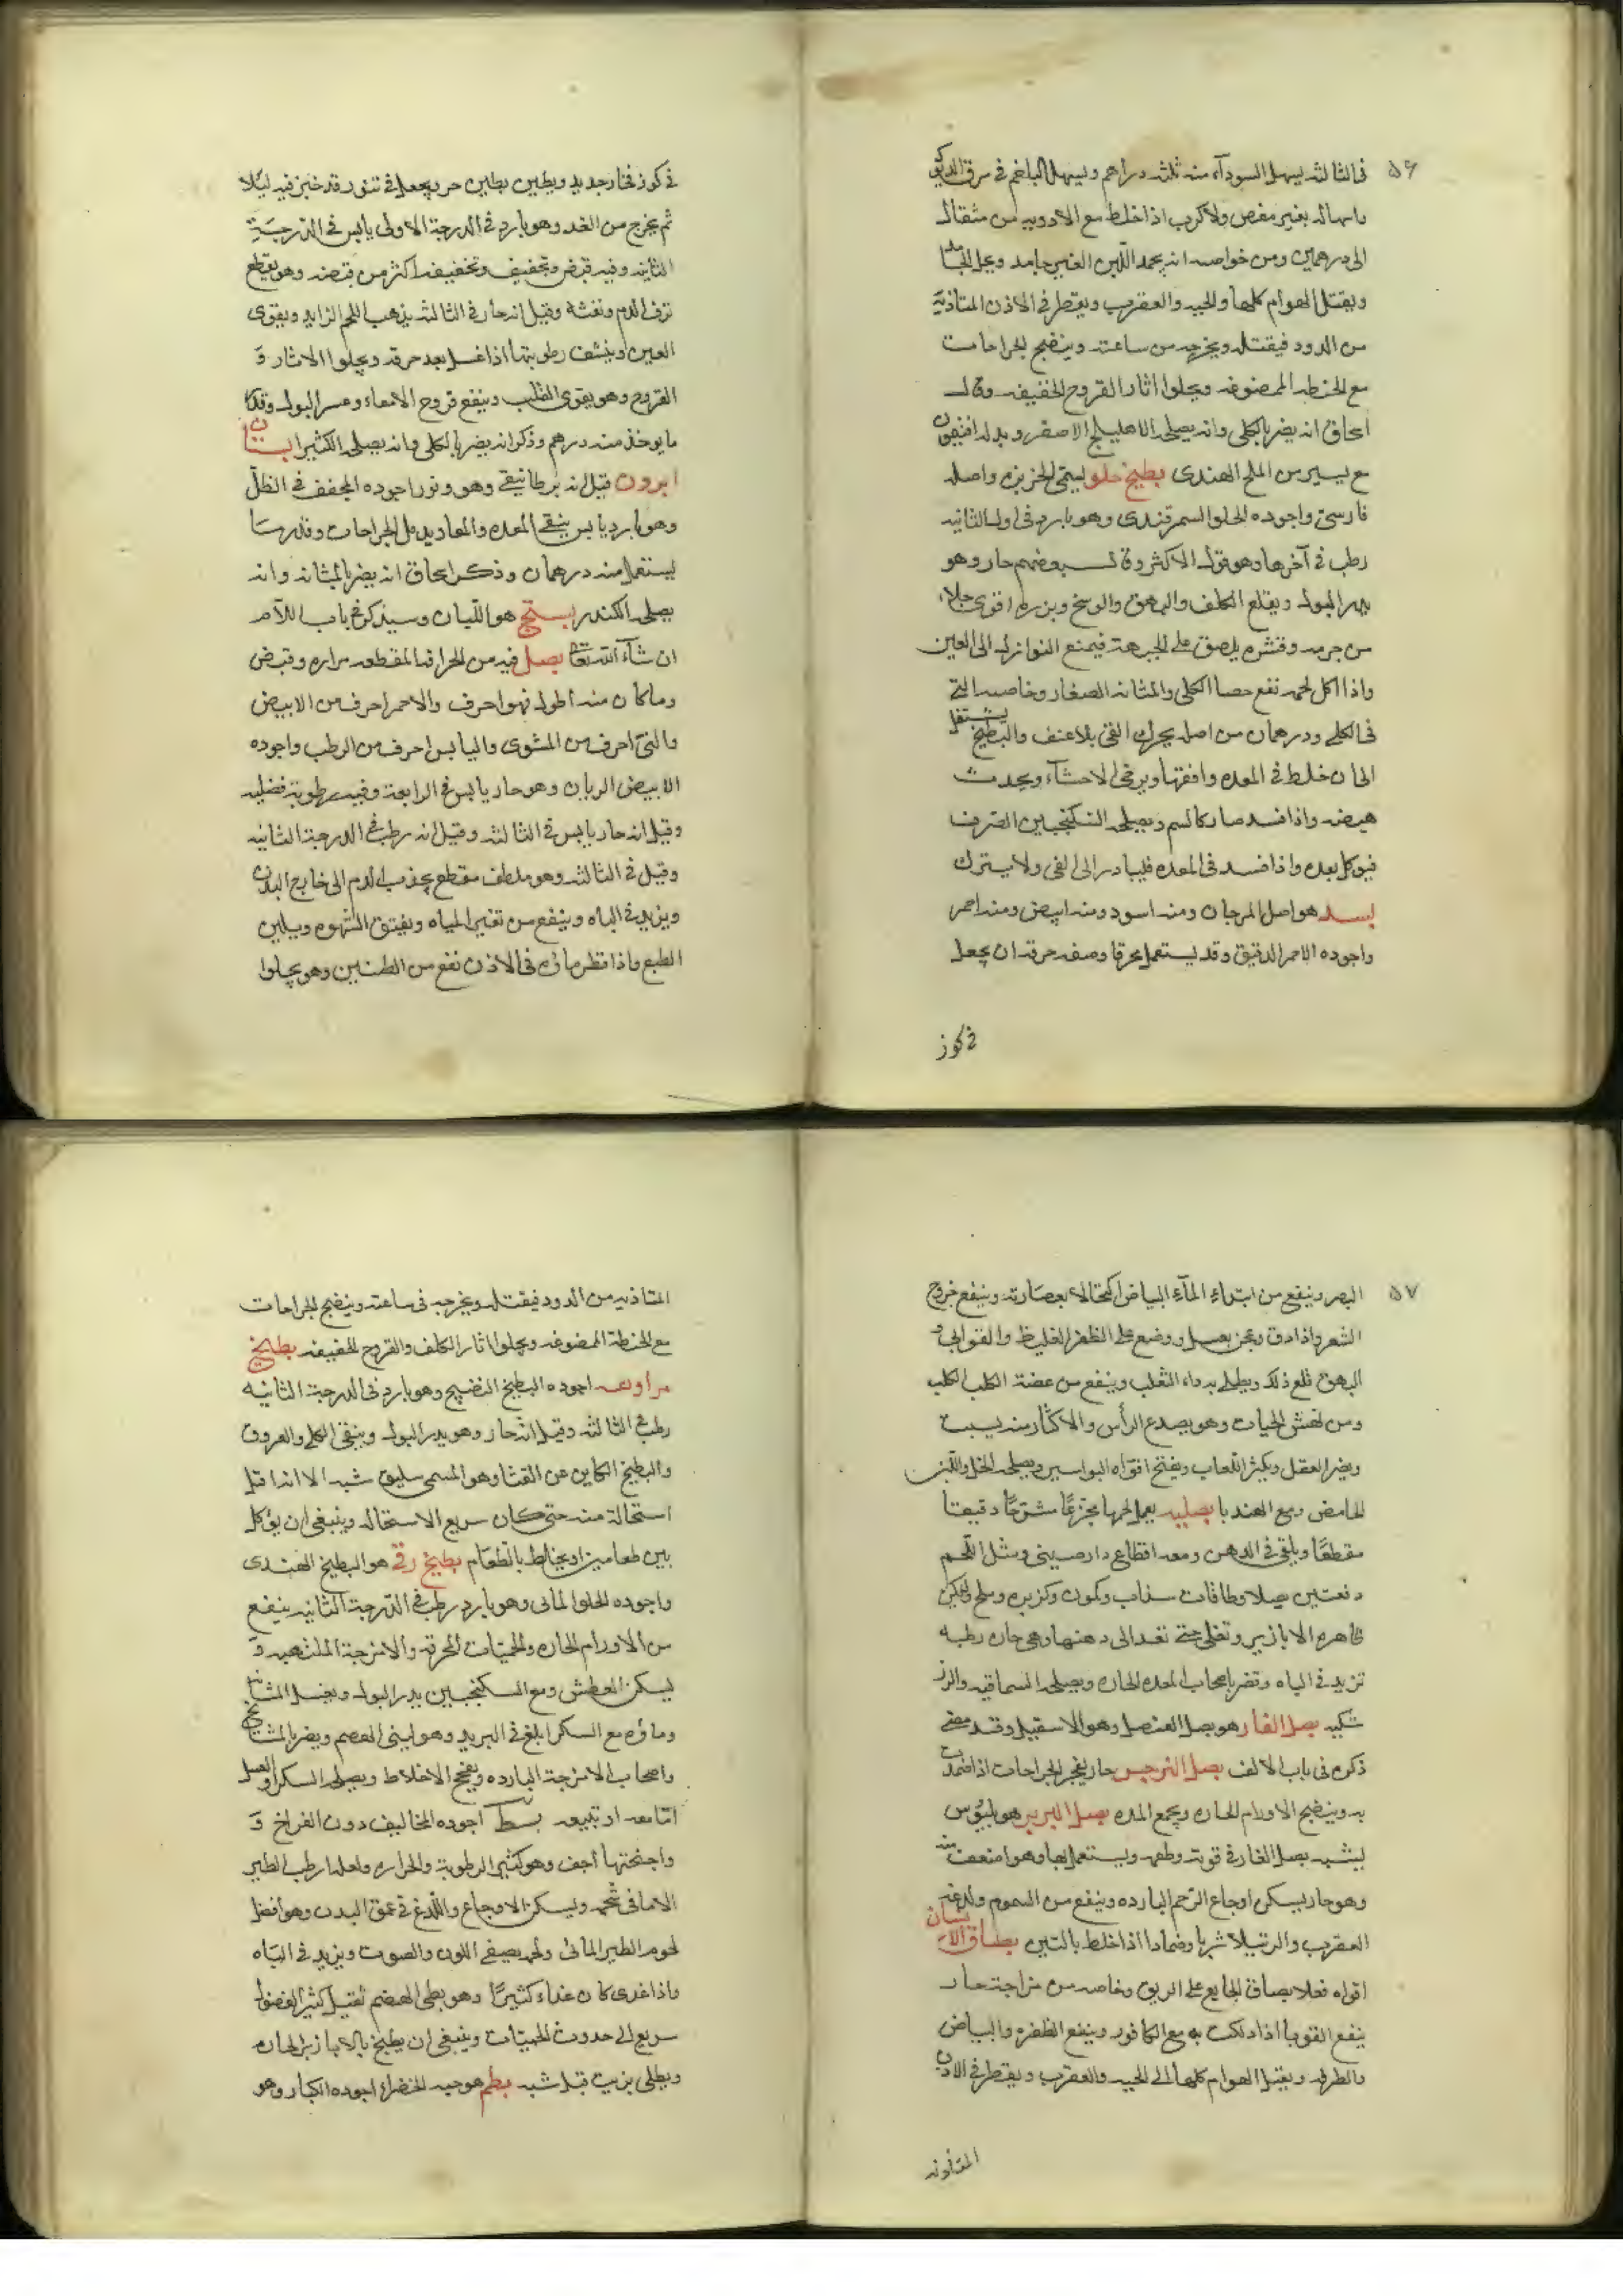 ٥٦
فى الثالثه يسهل السودآء منه ثلثه دراهم ويسهل البلغم فى مرق الديك
باسهاله بغير مغص ولا كرب اذا خلط مع الادويه من مثقال
الى درهمين ومن خواصه انه يجمد اللبن الغير جامد ويحل الجامد
ويقتل الهوام كلها والحيه والعقرب ويقطر فى الاذن المتاذيه
من الدود فيقتله ويخرجه من ساعته وينضج الجراحات
مع الحنطه الممضوغه ويجلوا اثار القروح الخفيفه وقال
اسحاق انه يضر بالكلى وانه يصلحه الاهليلج الاصفر وبدله افتيمون
مع يسير من الملح الهندى بطيخ حلو يسمى الخربزه واصله
فارسى واجوده الحلو السمرقندى وهو بارد فى اول الثانيه
رطب فى آخرها وهو قول الاكثر وقال بعضهم حار وهو
يدر البول ويقلع الكلف والبهق والوسخ وبزره اقوى جلاء
من جرمه وقشره يلصق على الجبهة فيمنع النوازل الى العين
واذا اكل لحمه نفع حصا الكلى والمثانه الصغار وخاصه التى
فى الكلى ودرهمان من اصله يحرك القى بلا عنف والبطيخ يستحيل
الى اى خلط فى المعده وافقها ويرخى الاحشآء ويحدث
هيضه واذا فسد صار كالسم ويصلحه السكنجبين الصرف
فيؤكل بعده واذا فسد فى المعده فليبادر الى القى ولا يترك
بسد هو اصل المرجان ومنه اسود ومنه ابيض ومنه احمر
واجوده الاحمر الدقيق وقد يستعمل محرقا وصفه حرقه ان يجعل
فى كوز
فى كوز فخار جديد ويطين بطين حر ويجعل فى تنور قد خبز فيه ليلا
ثم يخرج من الغد وهو بارد فى الدرجة الاولى يابس فى الدرجة
الثانيه وفيه قبض وتجفيف وتخفيفه اكثر من قبضه وهو يقطع
نزف الدم ونفثه وقيل انه حار فى الثالثه يذهب اللحم الزايد ويقوى
العين وينشف رطوبتها اذا غسل بعد حرقه ويجلوا الاثار و
القروح وهو يقوى القلب وينفع قروح الامعاء وعسر البول وقدر
ما يوخذ منه درهم وذكر انه يضر بالكلى وانه يصلحه الكثيرا بستان
ابروز قيل انه برطانيقى وهو ونور اجوده المجفف فى الظل
وهو بارد يابس ينقى المعده والمعا ويدمل الجراحات وقدر ما
يستعمل منه درهمان وذكر اسحاق انه يضر بالمثانه وانه
يصلحه الكندر بستج هو اللبان وسيذكر فى باب اللام
ان شآء الله تعالى بصل فيه من الحرافه المقطعه مراره وقبض
وما كان منه اطول فهو احرف والاحمر احرف من الابيض
والنى احرف من المشوى واليابس احرف من الرطب واجوده
الابيض الريان وهو حار يابس فى الرابعة وفيه رطوبة فضليه
وقيل انه حار يابس فى الثالثه وقيل انه رطب فى الدرجة الثانيه
وقيل فى الثالثه وهو ملطف مقطع يجذب الدم الى خارج البدن
ويزيد فى الباه وينفع من تغير المياه ويفتق الشهوه ويلين
الطبع واذا قطر ماؤه فى الاذن نفع من الطنين وهو يجلوا
٥٧
البصر وينفع من ابتداء المآء البياض اكتحالا بعصارته وينفع خروج
الشعر واذا دق وعجن بعسل ووضع على الظفر الغليظ والقوابى و
البهق قلع ذلك ويطلى به داء الثعلب وينفع من عضة الكلب الكلب
ومن نهش الحيات وهو يصدع الرأس والاكثار منه يسبت
ويضر العقل ويكثر اللعاب ويفتح افواه البواسير ويصلحه الخل واللبن
الحامض ومع الهندبا بصليه يعمل لحمها مجزعا مشرحا دقيقا
مقطعا ويلقى فى الدهن ومعه اقطاع دارصينى ومثل اللحم
دفعتين بصلا وطاقات سذاب وكمون وكزبره وملح وليكن
ظاهره الابازير وتغلى حتى تعد الى دهنها وهى حاره رطبه
تزيد فى الباه وتضر باصحاب المعده الحاره ويصلحه السماقيه والرز
شكيه بصل الفار هو بصل العنصل وهو الاسقيل وقد مضى
ذكره فى باب الالف بصل النرجس حار يفجر الجراحات اذا ضمدت
به وينضج الاورام الحاره ويجمع المده بصل البرير هو بلبوس
يشبه بصل الفار فى قوته وطعمه ويستعمل بها وهو اضعف منه
وهو حار يسكن اوجاع الرحم البارده وينفع من السموم ولدغة
العقرب والرتيلا شربا وضمادا اذا خلط بالتين بصاق الانسان
اقواه فعلا بصاق الجايع على الريق وخاصه من مزاجه حار
ينفع القوبا اذا دلكت به مع الكافور وينفع الظفره والبياض
والطرفه ويقتل الهوام كلها الى الحيه والعقرب ويقطر فى الاذن
المتاذيه
المتاذيه من الدود فيقتله ويخرجه فى ساعته وينضج الجراحات
مع الحنطة الممضوغه ويجلوا اثار الكلف والقروح الخفيفه بطيخ
اجوده البطيخ النضيج وهو بارد فى الدرجة الثانيه
رطب فى الثالثه وقيل انه حار وهو يدر البول وينقى الكلى والعروق
والبطيخ الكاين عن القثا وهو المسمى سليق شبه الا انه اقل
استحالة منه حتى كان سريع الاستحاله وينبغى ان يؤكل
بين طعامين او يخلط بالطعام بطيخ رقى هو البطيخ الهندى
واجوده الحلو المائى وهو بارد رطب فى الدرجة الثانيه ينفع
من الاورام الحاره والحميات المحرقه والامزجة الملتهبه و
يسكن العطش ومع السكنجبين يدر البول ويغسل المثانه
وماؤه مع السكر ابلغ فى التبريد وهو بطى الهضم ويضر بالمشايخ
واصحاب الامزجة البارده ويفجج الاخلاط ويصلحه السكر او العسل
اما معه او تبيعه بط اجوده المخاليف دون الفراخ و
واجنحتها اخف وهو كثير الرطوبة والحراره ولعله ارطب الطير
الاهلى شحمه ويسكن الاوجاع واللذع فى عمق البدن وهو افضل
لحوم الطير المائى ولحمه يصفى اللون والصوت ويزيد فى الباه
واذا غدى كان غذاء كثيرا وهو بطى الهضم ثقيل كثير الفضول
سريع الى حدوث الحميات وينبغى ان يطبخ بالابازير الحاره
ويطلى بزيت قبل شيه بطم هو حبه الخضراء اجوده الكبار وهو